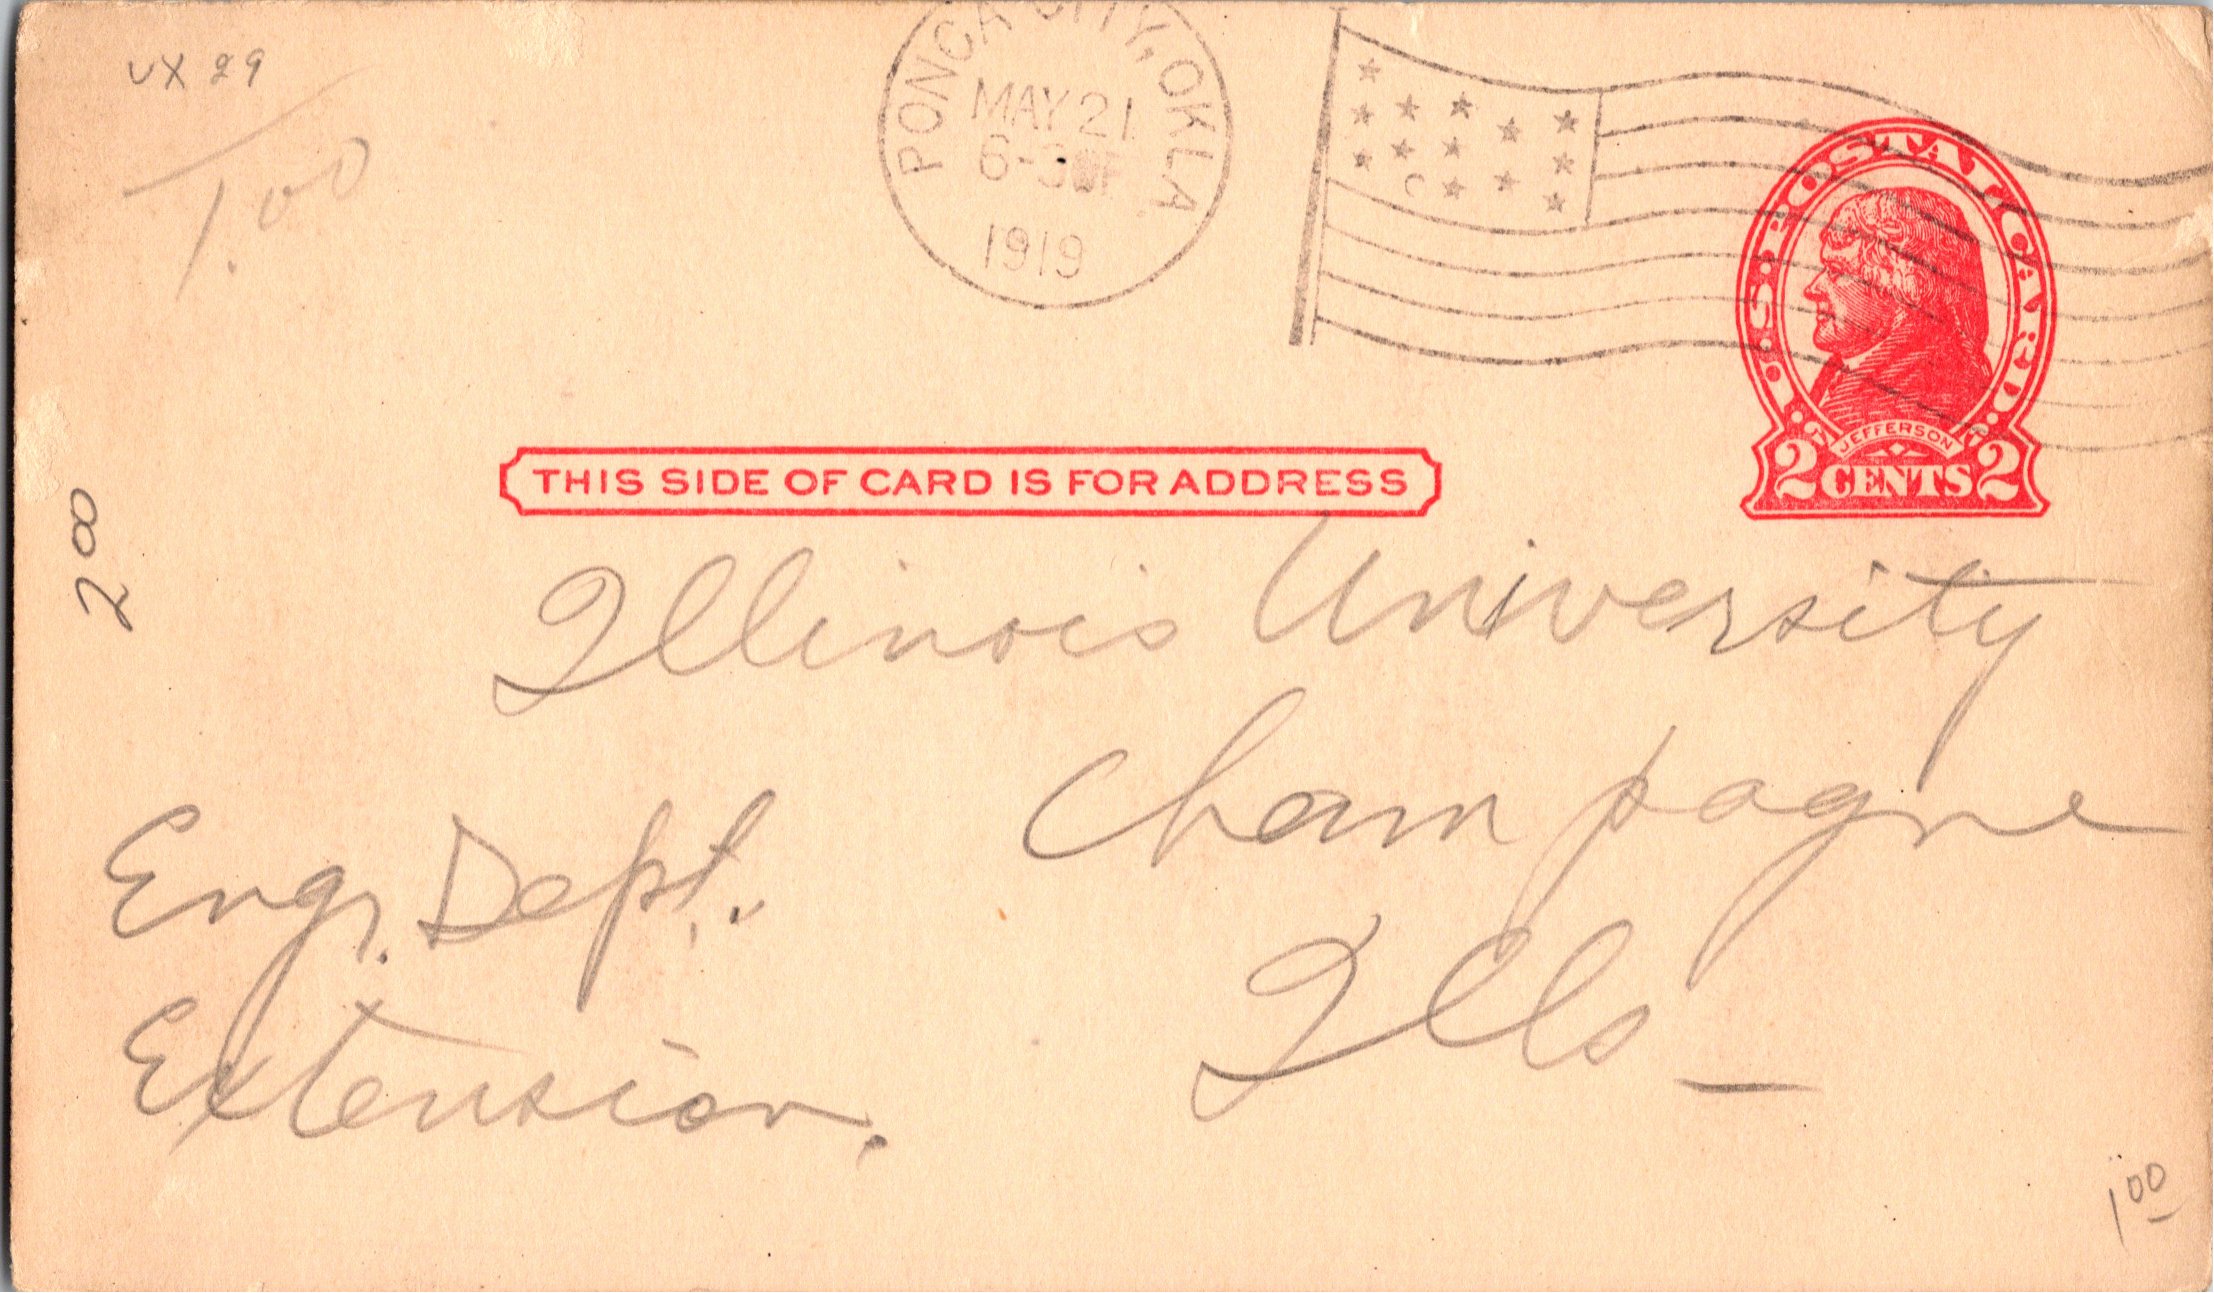 UX 29
1.00
PONCA CITY, OKLA
MAY 21
1919
U.S. POSTAL CARD
JEFFERSON
2 CENTS 2
THIS SIDE OF CARD IS FOR ADDRESS
200
Illinois University
Champagne
Ills -
Engr. Dept.
Extension.
1 00